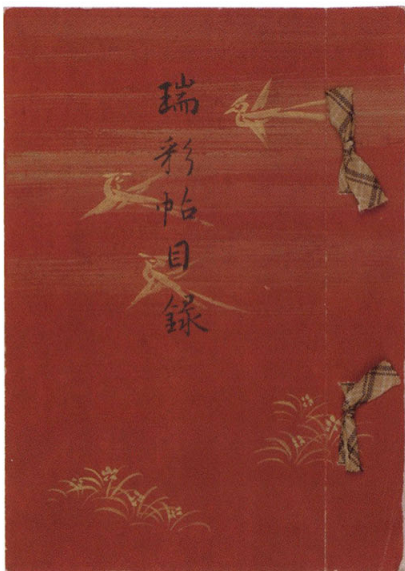 瑞彩帖目録